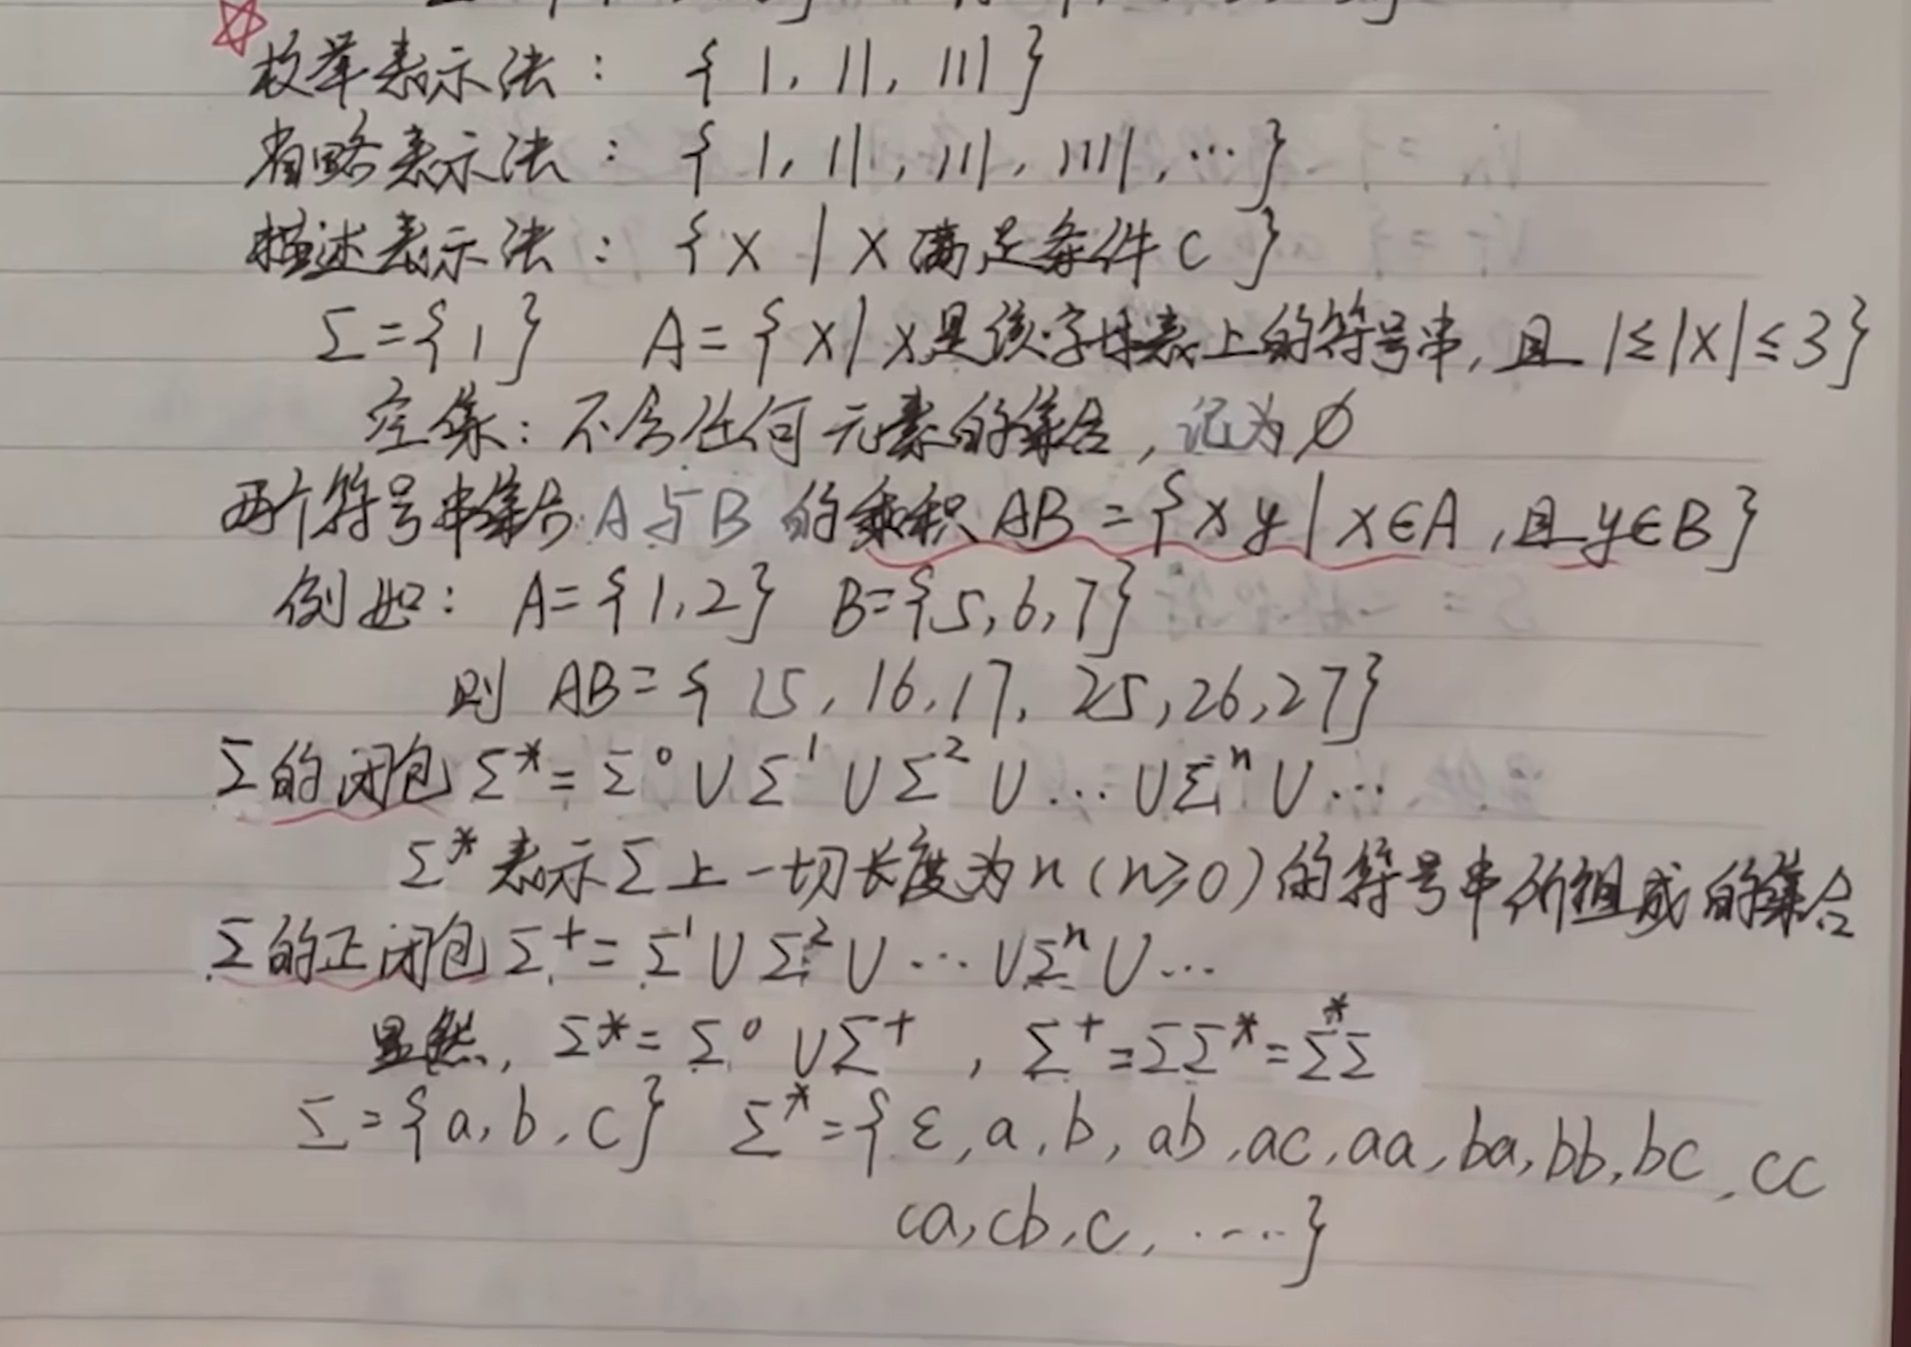 枚举表示法：{1, 11, 111}
省略表示法：{1, 11, 111, 1111, …}
描述表示法：{x | x满足条件c}
Σ={1} A={x|x是该字母表上的符号串,且 1≤|x|≤3}
空集：不含任何元素的集合，记为∅
两个符号串集合A与B的乘积AB={xy|x∈A,且y∈B}
例如：A={1,2} B={5,6,7}
则 AB={15,16,17,25,26,27}
Σ的闭包Σ*=Σ⁰∪Σ¹∪Σ²∪…∪Σⁿ∪…
Σ*表示Σ上一切长度为n(n≥0)的符号串所组成的集合
Σ的正闭包Σ⁺=Σ¹∪Σ²∪…∪Σⁿ∪…
显然,Σ*=Σ⁰∪Σ⁺,Σ⁺=ΣΣ*=Σ*Σ
Σ={a,b,c} Σ*={ε,a,b,ab,ac,aa,ba,bb,bc,cc
ca,cb,c,……}